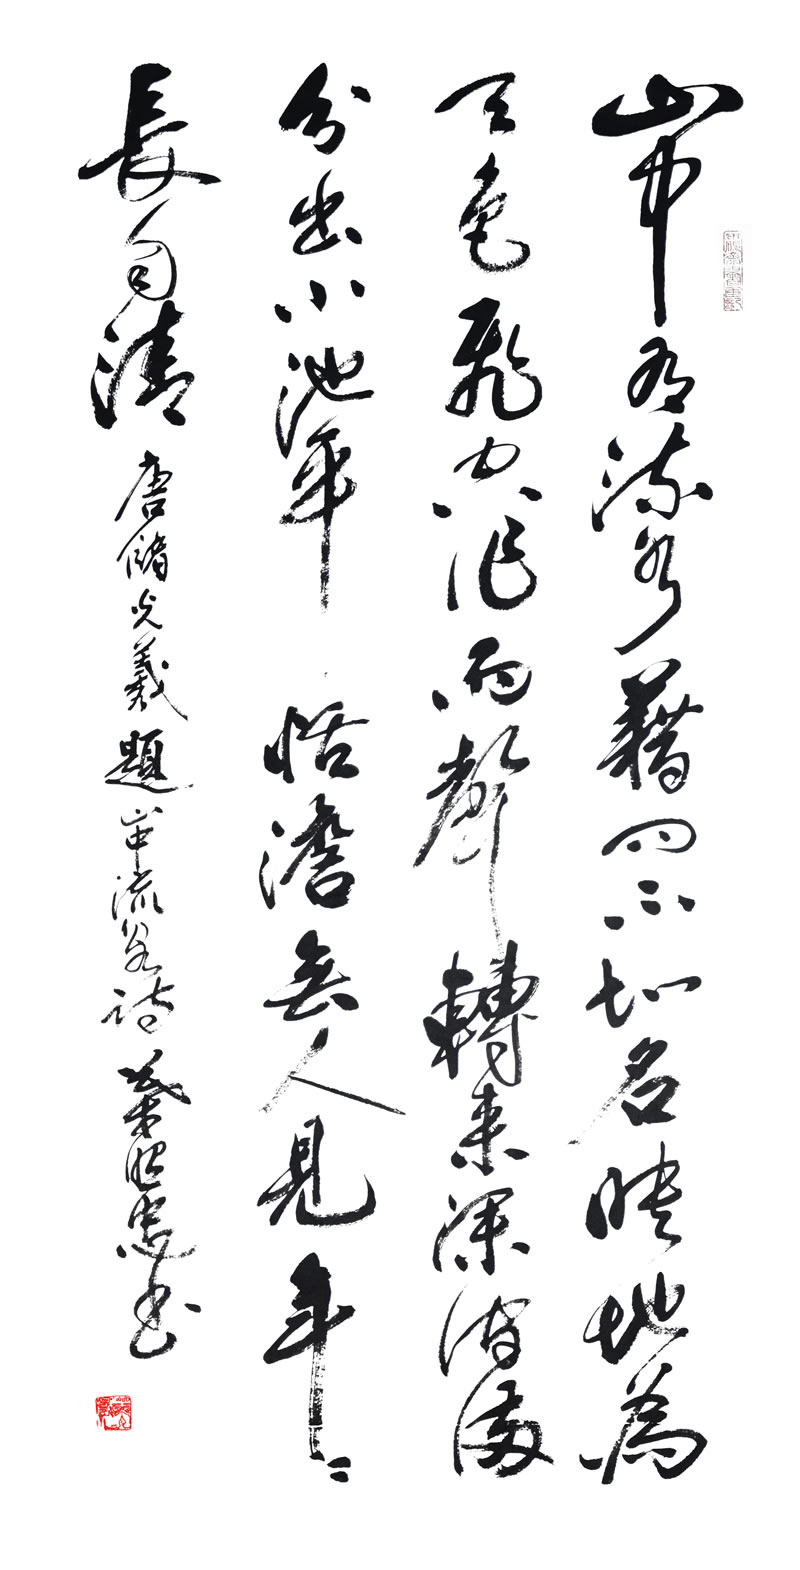 山中有流泉藉問不知名映地為
天色飛空作雨聲轉來深澗滿
分出小池平恬澹無人見年々
長自清 唐儲光羲題山中流泉詩 葉昭忠書